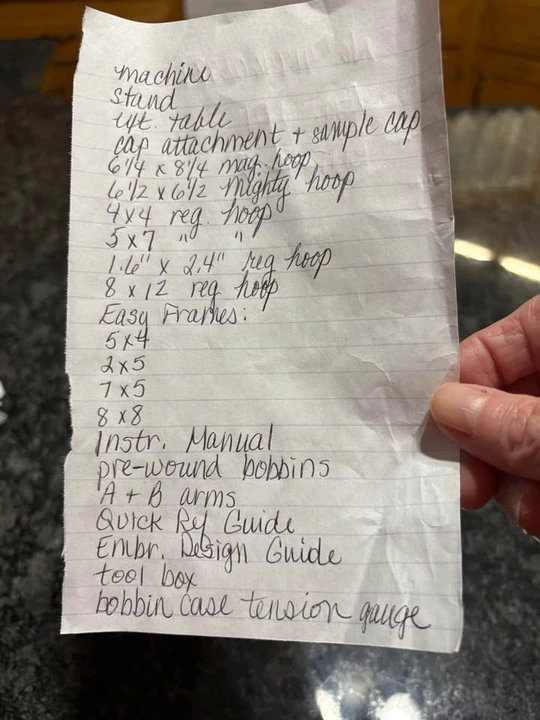 machine
stand
ext. table
cap attachment + sample cap
6 1/4 x 8 1/4 mag. hoop
6 1/2 x 6 1/2 Mighty hoop
4x4 reg. hoop
5x7 " "
1.6" x 2.4" reg hoop
8 x 12 reg hoop
Easy Frames:
5x4
2x5
7x5
8x8
Instr. Manual
pre-wound bobbins
A + B arms
Quick Ref Guide
Embr. Design Guide
tool box
bobbin case tension gauge